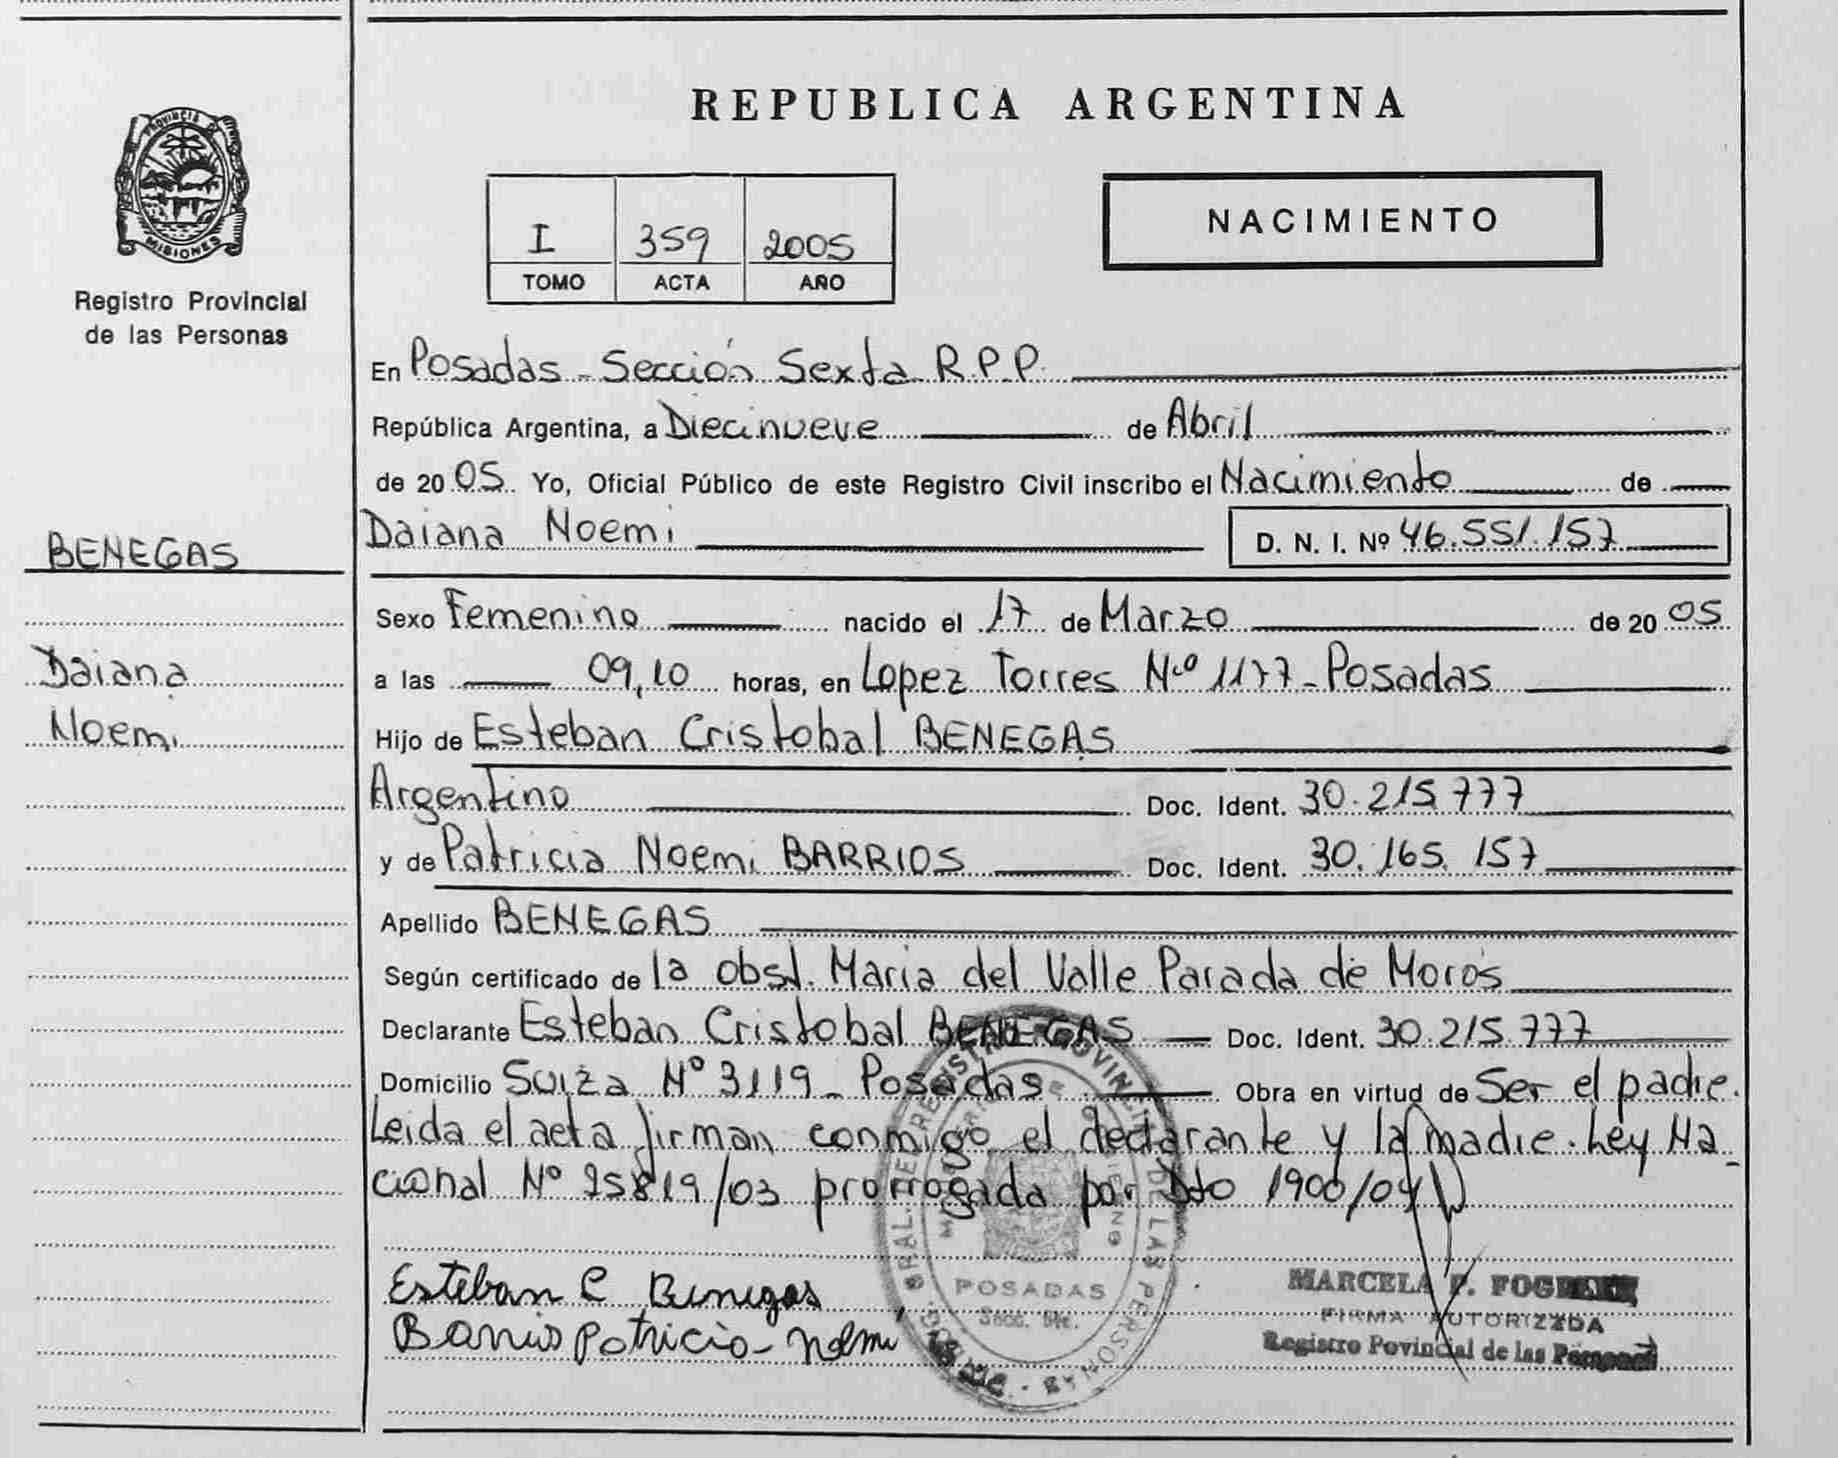 PROVINCIA DE
MISIONES
Registro Provincial
de las Personas
BENEGAS
Daiana
Noemi
REPUBLICA ARGENTINA
I 359 2005
TOMO ACTA AÑO
NACIMIENTO
En Posadas - Sección Sexta R.P.P.
República Argentina, a Diecinueve de Abril
de 2005 Yo, Oficial Público de este Registro Civil inscribo el Nacimiento de
Daiana Noemi D. N. I. Nº 46.551.157
Sexo Femenino nacido el 17 de Marzo de 2005
a las 09,10 horas, en Lopez Torres Nº 1177 - Posadas
Hijo de Esteban Cristobal BENEGAS
Argentino Doc. Ident. 30.215.777
y de Patricia Noemi BARRIOS Doc. Ident. 30.165.157
Apellido BENEGAS
Según certificado de la obst. Maria del Valle Parada de Moros
Declarante Esteban Cristobal BENEGAS Doc. Ident. 30.215.777
Domicilio Suiza Nº 3119 - Posadas Obra en virtud de Ser el padre.
Leida el acta firman conmigo el declarante y la madre. Ley Na_
cional Nº 25819/03 prorrogada por Dto 1900/04
Esteban C Benegas
Barrios Patricia - Noemi
POSADAS
Secc.
MARCELA F.
FIRMA AUTORIZADA
Registro Povincial de las Personas